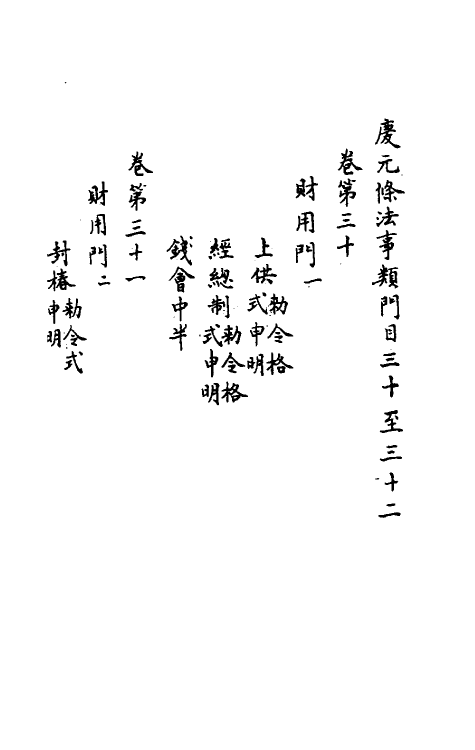 慶元條法事類門目三十至三十二
卷第三十
財用門一
上供勅令格式申明
經總制勅令格式申明
錢會中半
卷第三十一
財用門二
封樁勅令式申明